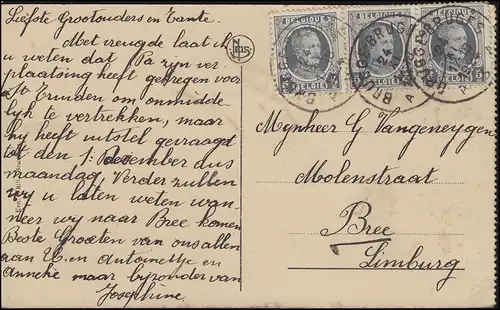 Liefste Grootouders en Tante.
Met vreugde laat ik
u weten dat Pa zyn ver-
plaatsing heeft gekregen voor
St Truiden om onmidde-
lyk te vertrekken, maar
hy heeft uitstel gevraagd
tot den 1: December dus
maandag. Verder zullen
wy u laten weten wan-
neer wy naar Bree komen
Beste Groeten van ons allen
aan U. en Antoinettje en
Anneke maar byzonder van
Josephine.
NELS
BELGIQUE
BELGIË
BELGIQUE
BELGIË
BELGIQUE
BELGIË
BRUGGE
BRUGES
Mynheer G Vangeneygen
Molenstraat
Bree
Limburg